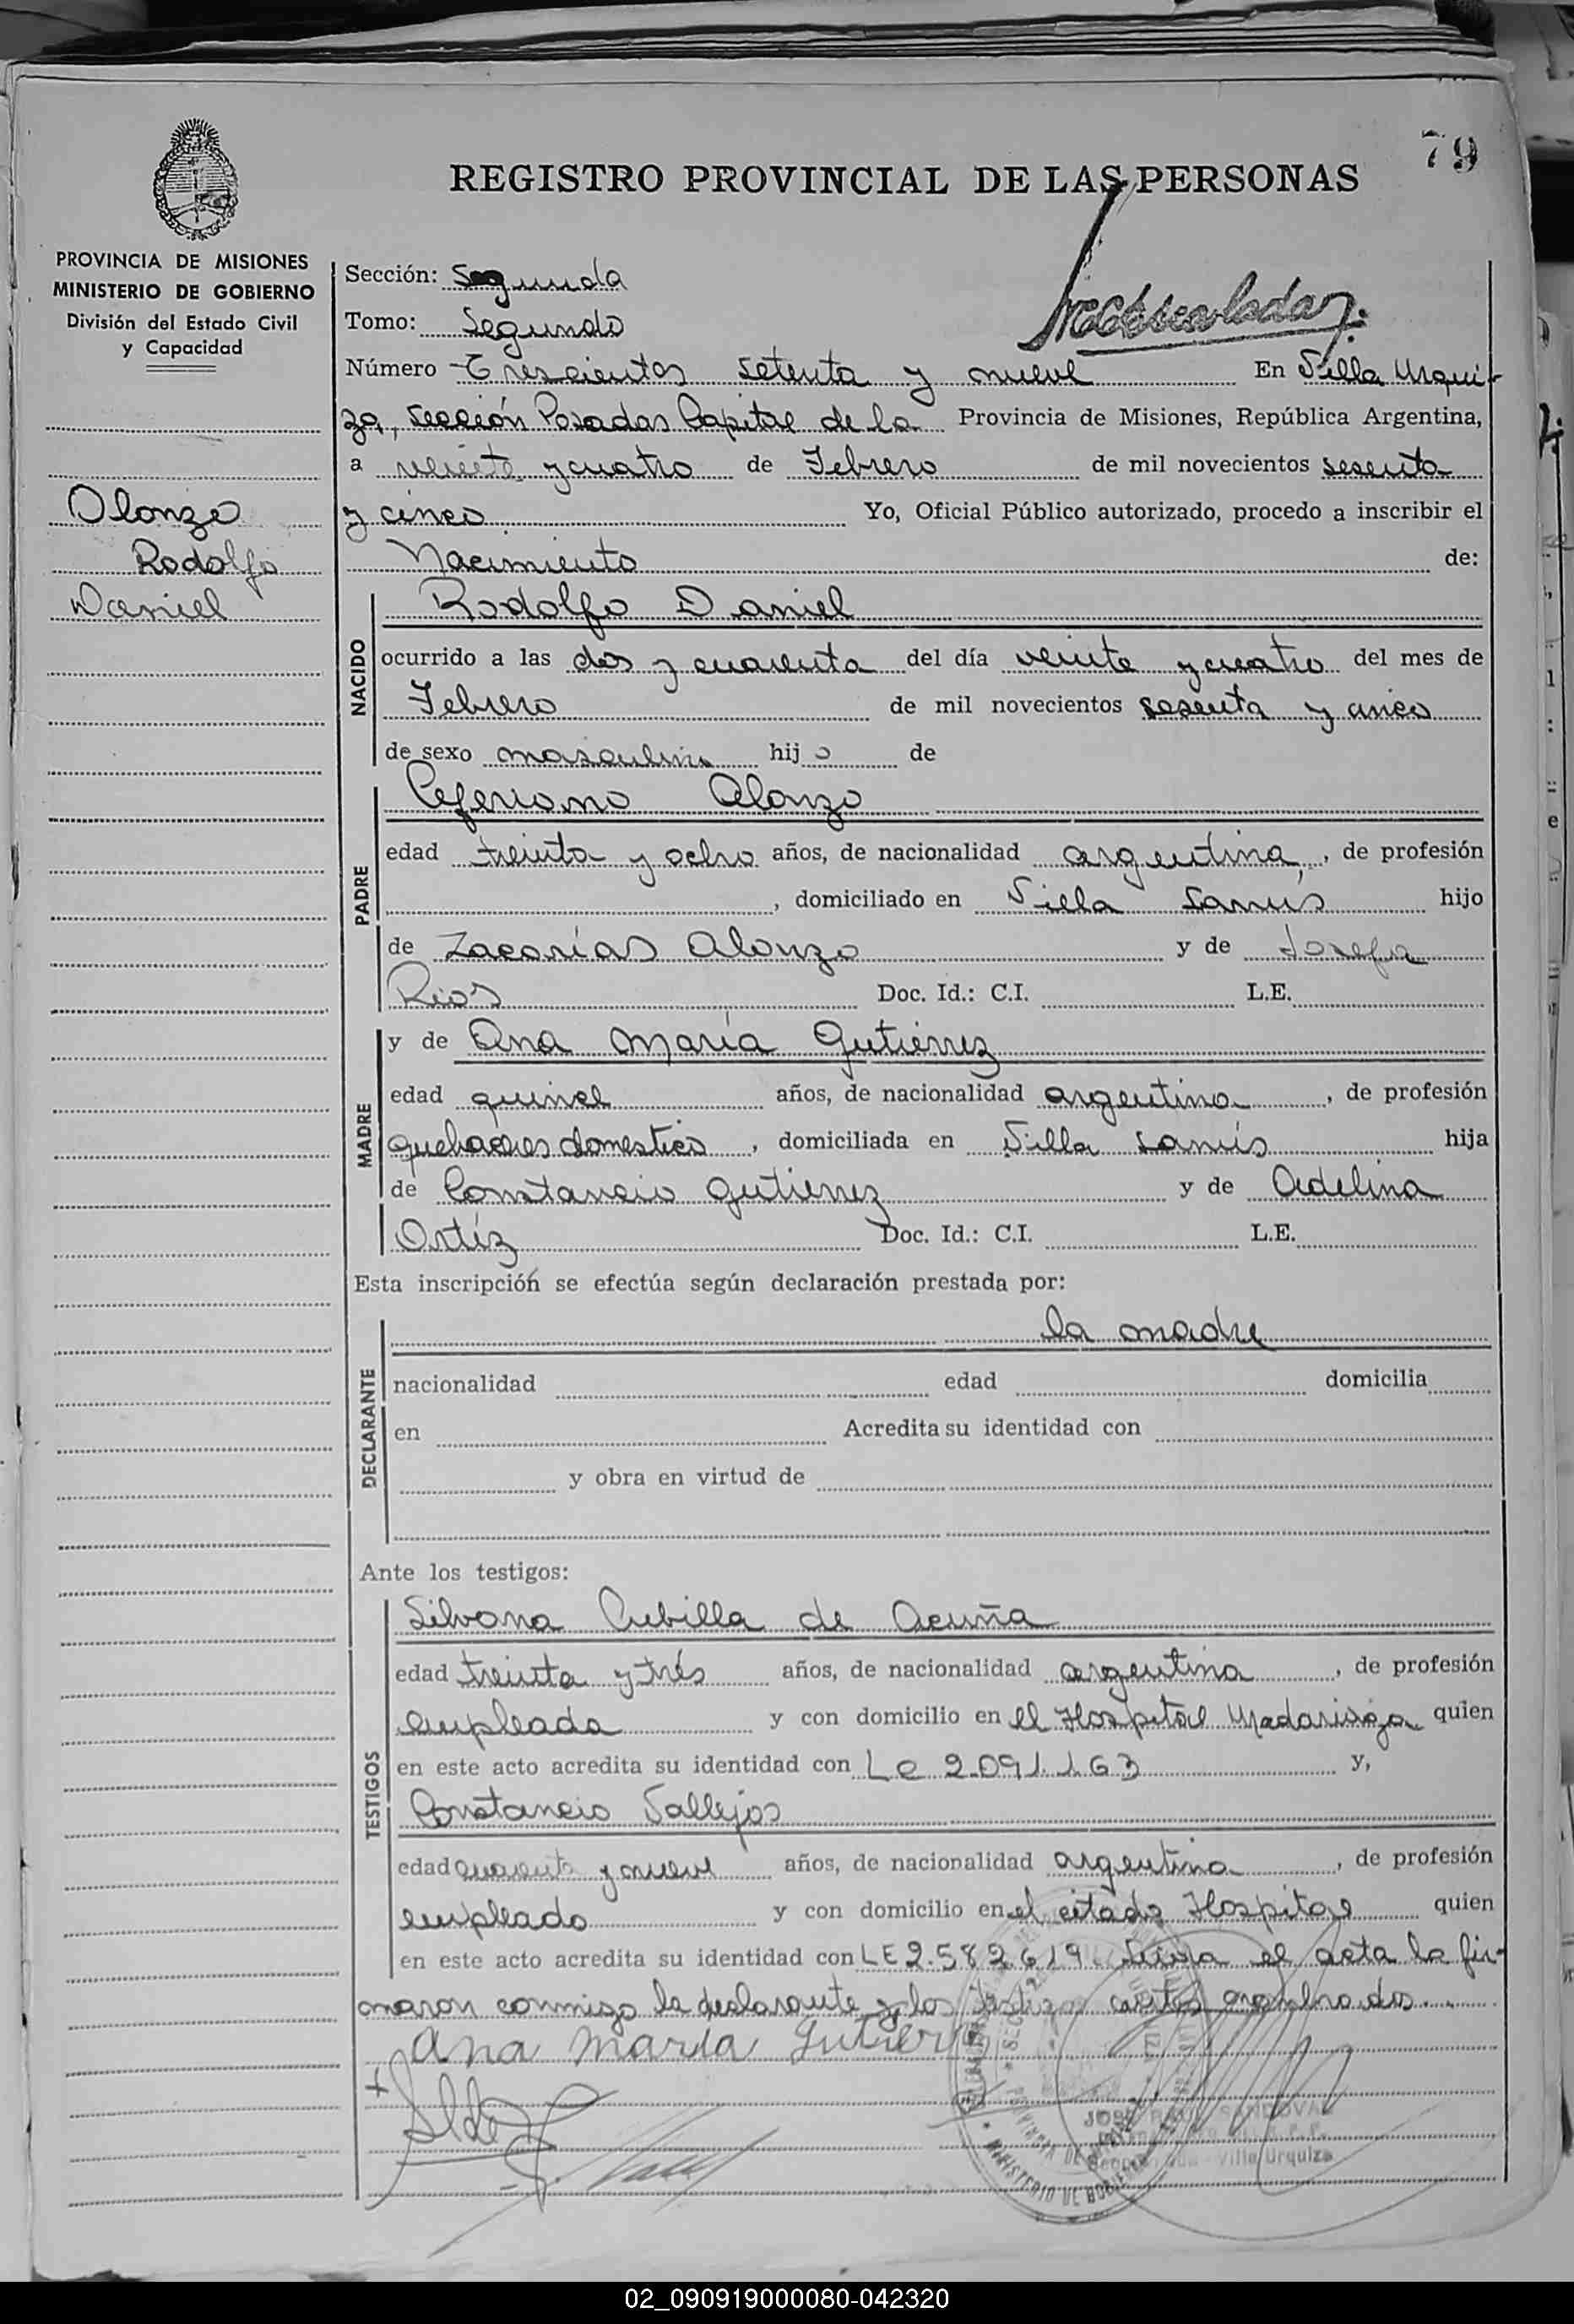 79
REGISTRO PROVINCIAL DE LAS PERSONAS
PROVINCIA DE MISIONES
MINISTERIO DE GOBIERNO
División del Estado Civil
y Capacidad
Alonzo
Rodolfo
Daniel
Sección: Segunda
Tomo: Segundo
Número Trescientos setenta y nueve En Villa Urqui-
za, Sección Posadas Capital de la Provincia de Misiones, República Argentina,
a veinte y cuatro de Febrero de mil novecientos sesenta
y cinco Yo, Oficial Público autorizado, procedo a inscribir el
Nacimiento de:
NACIDO
Rodolfo Daniel
ocurrido a las dos y cuarenta del día veinte y cuatro del mes de
Febrero de mil novecientos sesenta y cinco
de sexo masculino hijo de
PADRE
Ceferiano Alonzo
edad treinta y ocho años, de nacionalidad argentina, de profesión
, domiciliado en Villa Lanús hijo
de Zacarías Alonzo y de Josefa
Rios Doc. Id.: C.I. L.E.
MADRE
y de Ana María Gutiérrez
edad quince años, de nacionalidad argentina, de profesión
quehaceres domestico, domiciliada en Villa Lanús hija
de Constancio Gutierrez y de Adelina
Ortíz Doc. Id.: C.I. L.E.
Esta inscripción se efectúa según declaración prestada por:
DECLARANTE
la madre
nacionalidad edad domicilia
en Acredita su identidad con
y obra en virtud de
Ante los testigos:
TESTIGOS
Silvana Cubilla de Acuña
edad treinta y trés años, de nacionalidad argentina, de profesión
empleada y con domicilio en el Hospital Madariaga quien
en este acto acredita su identidad con Lc 2.091.163 y,
Constancio Vallejos
edad cuarenta y nueve años, de nacionalidad argentina, de profesión
empleado y con domicilio en el citado Hospital quien
en este acto acredita su identidad con LE 2.582.619 el acta la fir-
maron conmigo la declarante y los testigos nombrados.
Ana María Gutiérrez
Villa Urquiza
02_090919000080-042320